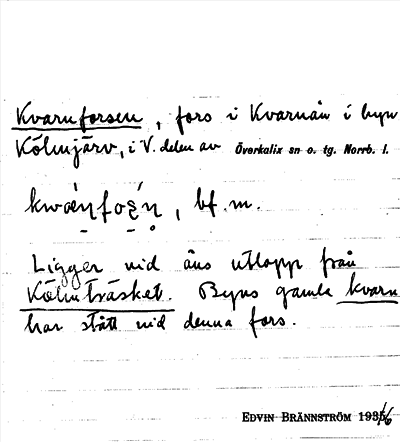 Kvarnforsen, fors i Kvarnån i byn
Kölmjärv, i V. delen av Överkalix sn o. tg. Norrb. l.
kwæ̀ṇfoʂéṇ, bf. m.
Ligger vid åns utlopp från
Kölmträsket. Byns gamla kvarn
har stått vid denna fors.
EDVIN BRÄNNSTRÖM 1935/46